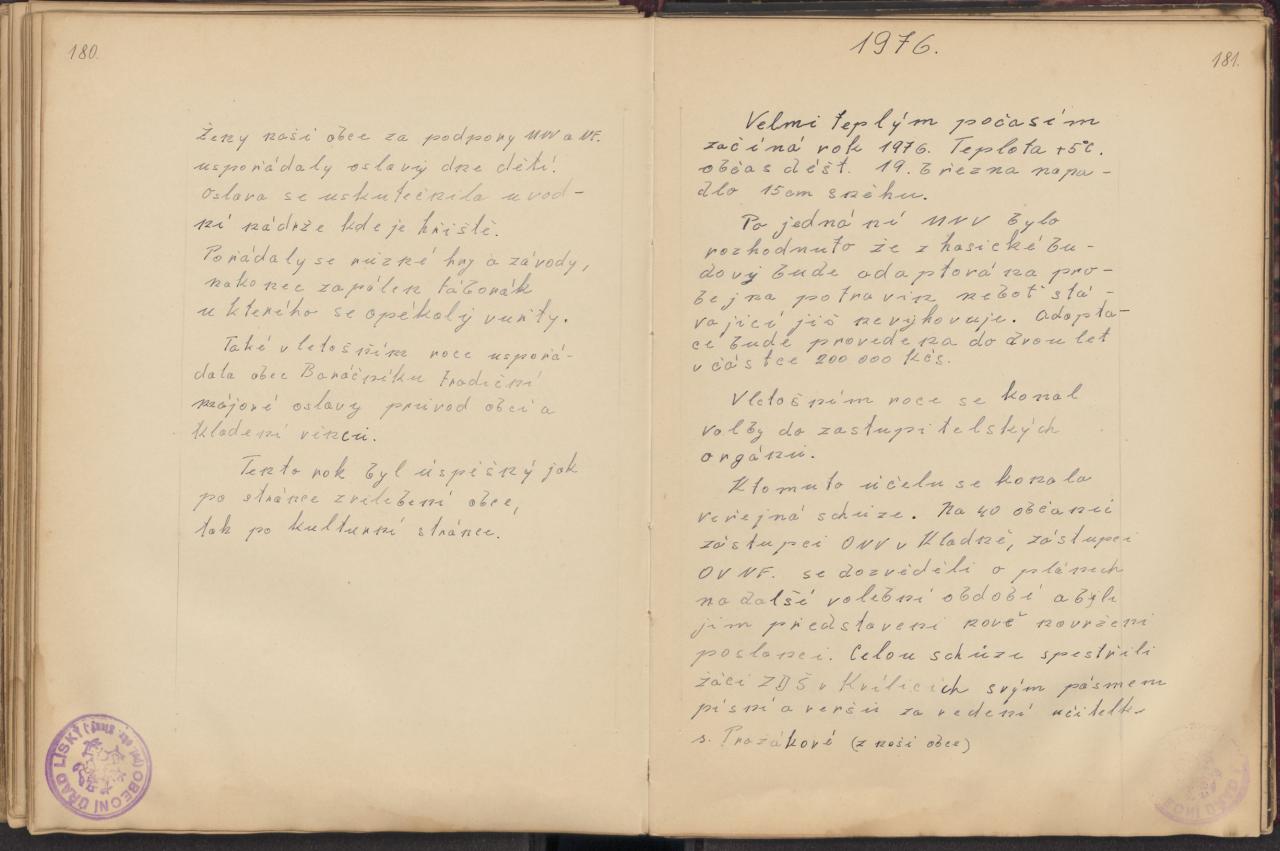 180.
Ženy naší obce za podpory MNV a NF.
uspořádaly oslavy dne dětí.
Oslava se uskutečnila u vod-
ní nádrže kde je hřiště.
Pořádaly se různé hry a závody,
nakonec zapálen táborák
u kterého se opékaly vuřty.
Také v letošním roce uspořá-
dala obec Baráčníku tradiční
májové oslavy průvod obcí a
kladení věnců.
Tento rok byl úspěšný jak
po stránce zvelebení obce,
tak po kulturní stránce.
OBECNÍ ÚŘAD LISKÝ
1976.
181.
Velmi teplým počasím
začíná rok 1976. Teplota +5°C.
občas déšť. 19. Března napa-
dlo 15cm sněhu.
Po jednání MNV bylo
rozhodnuto že z hasické bu-
dovy bude adaptována pro-
dejna potravin neboť stá-
vající již nevyhovuje. Adapta-
ce bude provedena do dvou let
v částce 200 000 Kčs.
V letošním roce se konal
volby do zastupitelských
orgánů.
K tomuto účelu se konala
veřejná schůze. Na 40 občanů
zástupci ONV v Kladně, zástupci
OV NF. se dozvěděli o plánech
na další volební období a byli
jim představeni nově navrženi
poslanci. Celou schůzi spestřili
žáci ZDŠ v Kvílicích svým pásmem
písní a veršů za vedení učitelky
s. Pražákové (z naší obce)